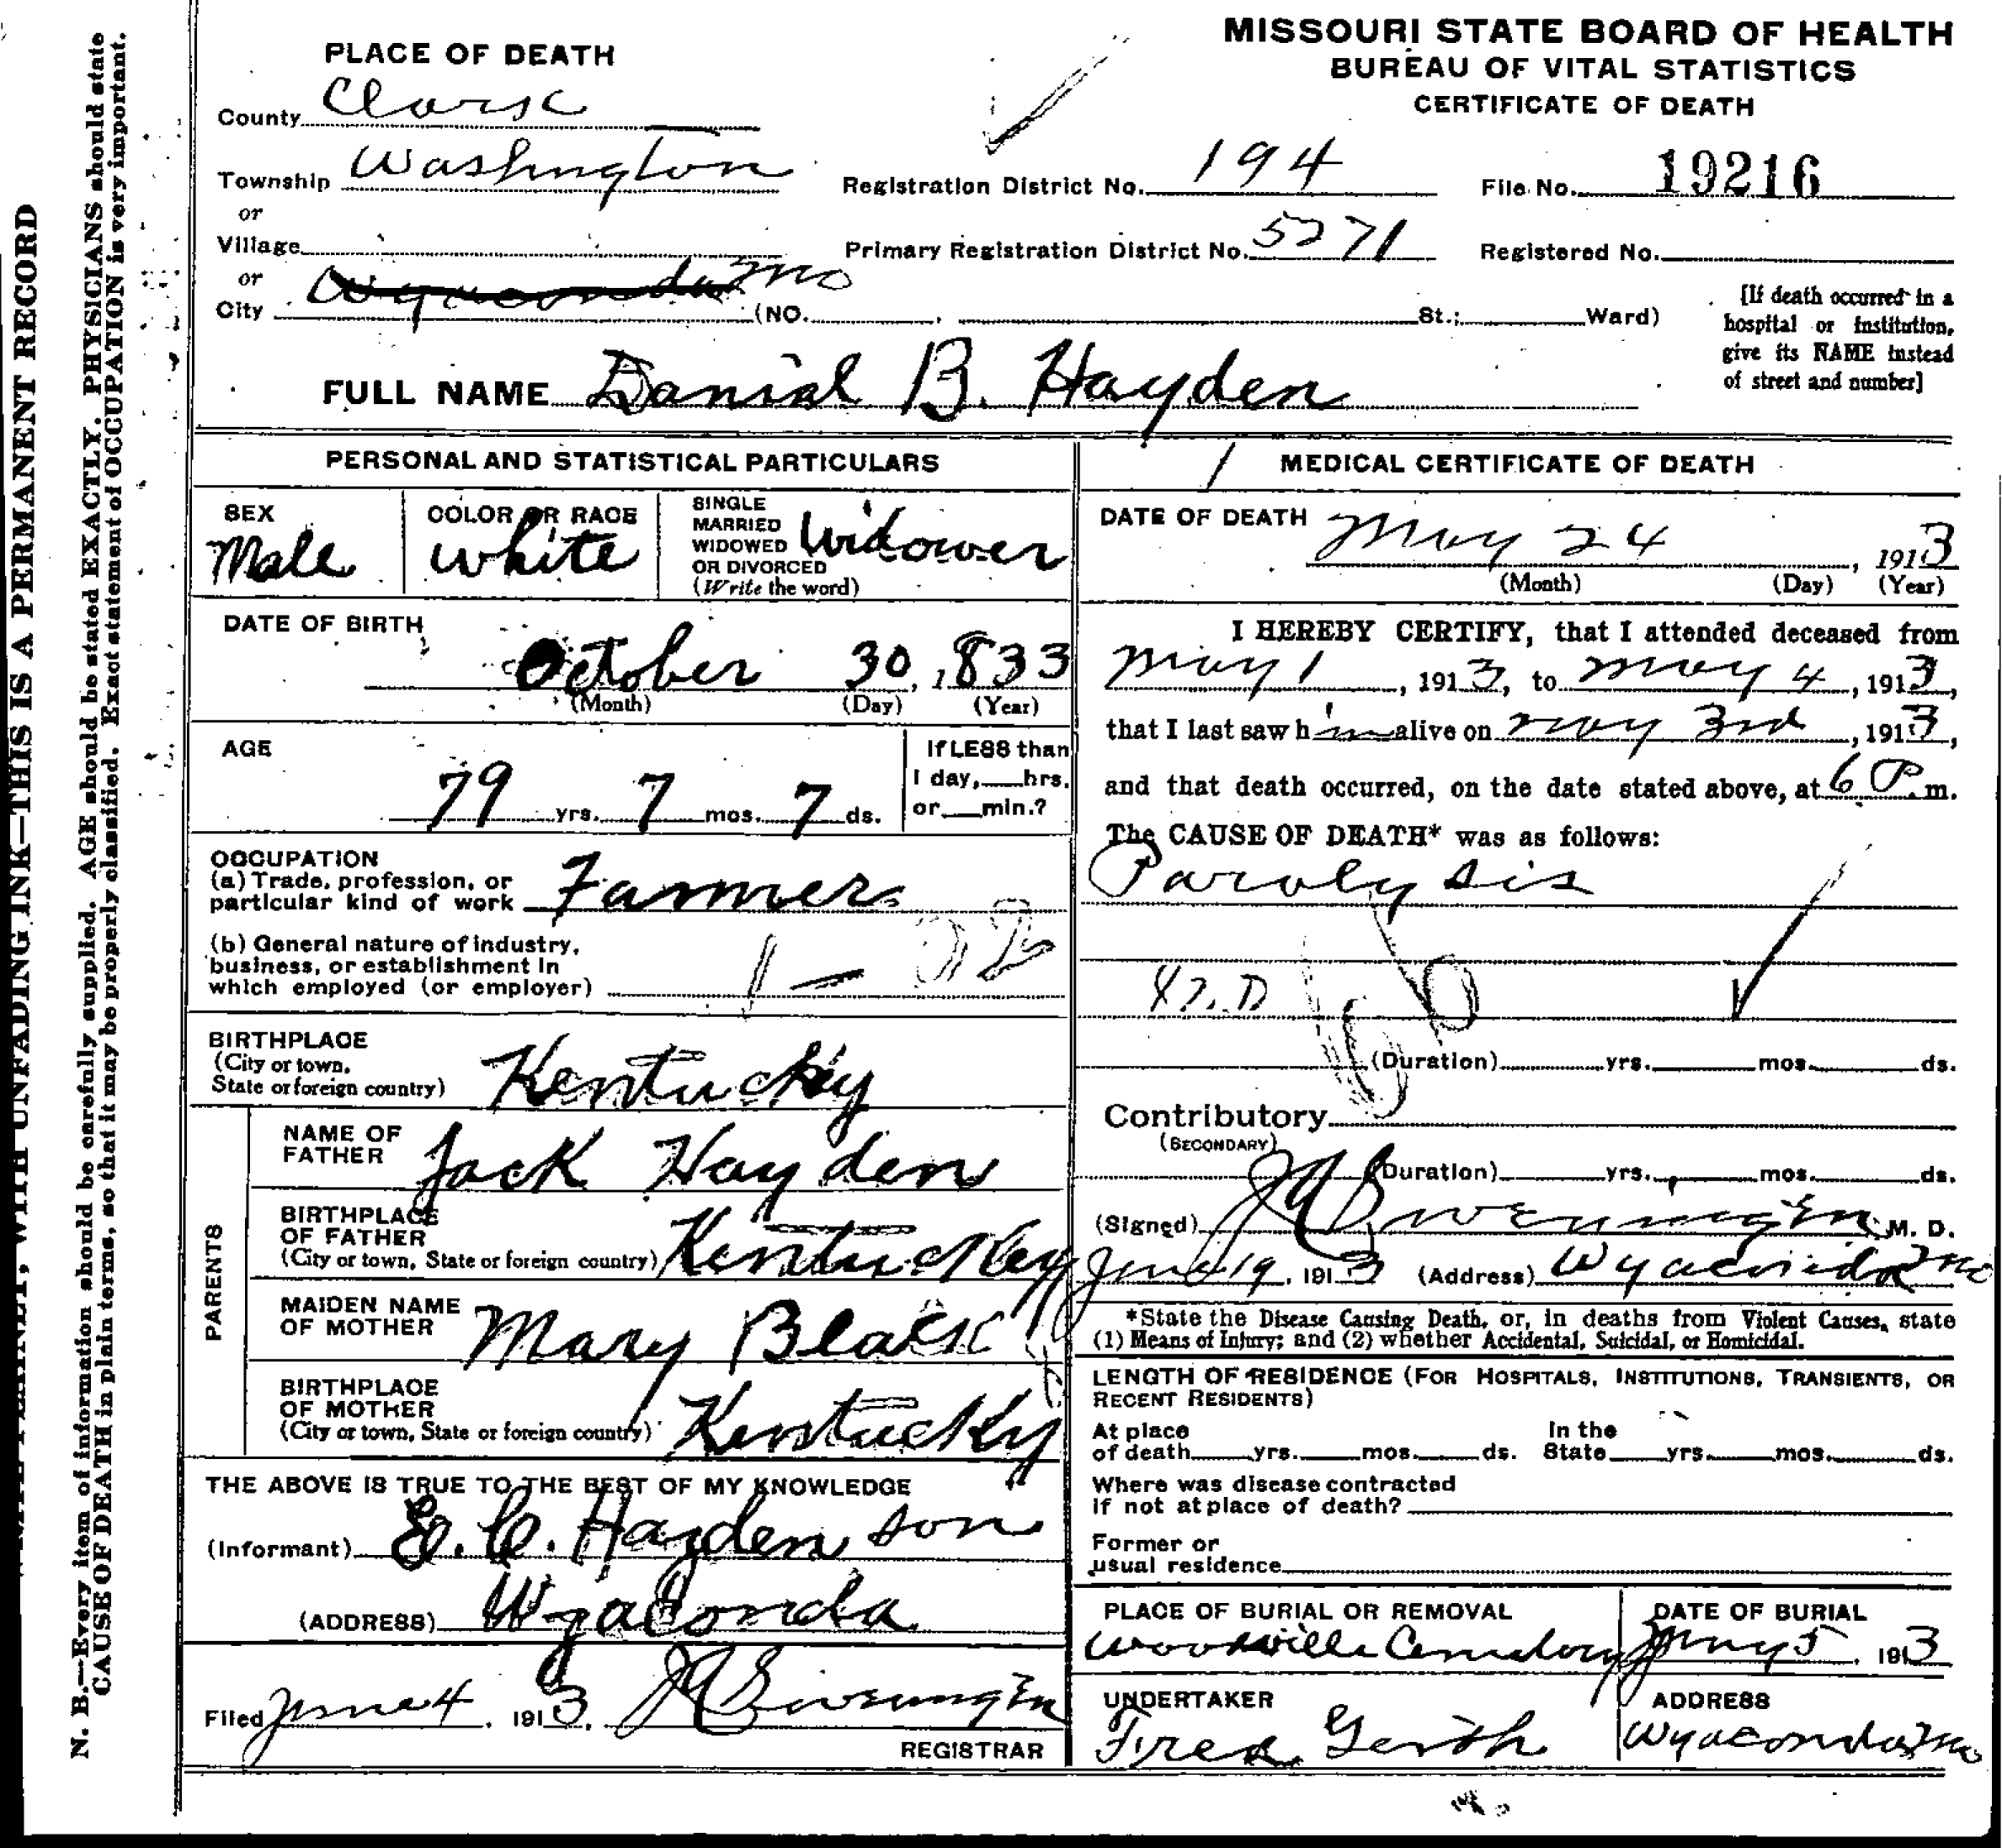 MISSOURI STATE BOARD OF HEALTH
BUREAU OF VITAL STATISTICS
CERTIFICATE OF DEATH
PLACE OF DEATH
County Clark
Township Washington
or
Village
or
City Wyaconda Mo (NO. St.; Ward)
Registration District No. 194
File No. 19216
Primary Registration District No. 5271
Registered No.
[If death occurred in a
hospital or institution,
give its NAME instead
of street and number]
FULL NAME Danial B. Hayden
PERSONAL AND STATISTICAL PARTICULARS
SEX
Male
COLOR OR RACE
White
SINGLE
MARRIED
WIDOWED
OR DIVORCED
(Write the word)
Widower
DATE OF BIRTH
October 30, 1833
(Month) (Day) (Year)
AGE
79 yrs. 7 mos. 7 ds.
If LESS than
1 day, hrs.
or min.?
OCCUPATION
(a) Trade, profession, or
particular kind of work Farmer
(b) General nature of industry,
business, or establishment in
which employed (or employer)
BIRTHPLACE
(City or town,
State or foreign country) Kentucky
PARENTS
NAME OF
FATHER Jack Hayden
BIRTHPLACE
OF FATHER
(City or town, State or foreign country) Kentuckey
MAIDEN NAME
OF MOTHER Mary Black
BIRTHPLACE
OF MOTHER
(City or town, State or foreign country) Kentucky
THE ABOVE IS TRUE TO THE BEST OF MY KNOWLEDGE
(Informant) E. C. Hayden son
(ADDRESS) Wyaconda
Filed June 4, 1913,
REGISTRAR
MEDICAL CERTIFICATE OF DEATH
DATE OF DEATH May 24, 1913
(Month) (Day) (Year)
I HEREBY CERTIFY, that I attended deceased from
May 1, 1913, to May 4, 1913,
that I last saw him alive on May 3rd, 1913,
and that death occurred, on the date stated above, at 6 P. m.
The CAUSE OF DEATH* was as follows:
Paralysis
(Duration) yrs. mos. ds.
Contributory
(SECONDARY)
(Duration) yrs. mos. ds.
(Signed) M. D.
1913 (Address) Wyaconda Mo
*State the Disease Causing Death, or, in deaths from Violent Causes, state
(1) Means of Injury; and (2) whether Accidental, Suicidal, or Homicidal.
LENGTH OF RESIDENCE (FOR HOSPITALS, INSTITUTIONS, TRANSIENTS, OR
RECENT RESIDENTS)
At place
of death yrs. mos. ds.
In the
State yrs. mos. ds.
Where was disease contracted
if not at place of death?
Former or
usual residence
PLACE OF BURIAL OR REMOVAL
Woodville Cemetory
DATE OF BURIAL
May 5, 1913
UNDERTAKER
Fred Gerth
ADDRESS
Wyaconda Mo
THIS IS A PERMANENT RECORD
WITH UNFADING INK
N. B.—Every item of information should be carefully supplied. AGE should be stated EXACTLY. PHYSICIANS should state
CAUSE OF DEATH in plain terms, so that it may be properly classified. Exact statement of OCCUPATION is very important.